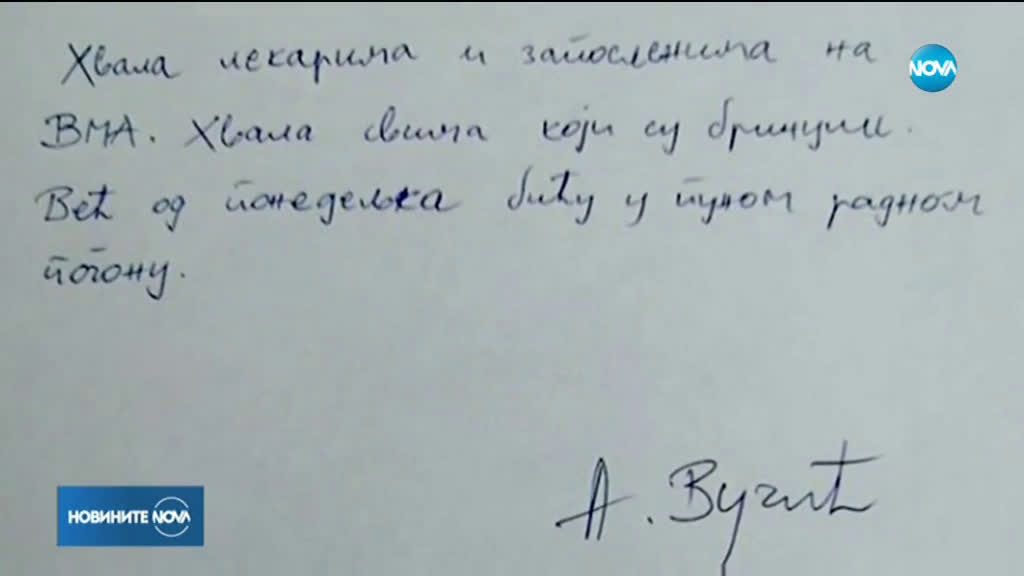 Хвала лекарима и запосленима на
ВМА. Хвала свима који су бринули.
Већ од понедељка бићу у пуном радном
погону.
А. Вучић
NOVA
НОВИНИТЕ NOVA